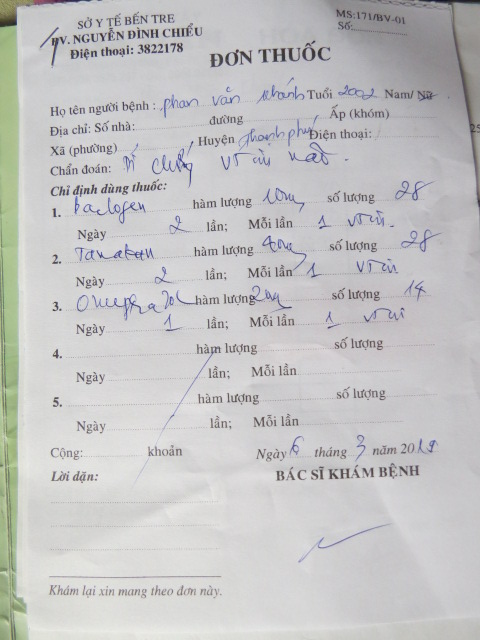 SỞ Y TẾ BẾN TRE
BV. NGUYỄN ĐÌNH CHIỂU
Điện thoại: 3822178
MS:171/BV-01
Số:
ĐƠN THUỐC
Họ tên người bệnh : phan văn khánh Tuổi 2002 Nam/ Nữ
Địa chỉ: Số nhà: đường Ấp (khóm)
Xã (phường) Huyện thạnh phú Điện thoại:
Chẩn đoán: Di chứng viêm não.
Chỉ định dùng thuốc:
1. baclofen hàm lượng 10mg số lượng 28
Ngày 2 lần; Mỗi lần 1 viên.
2. Tanakan hàm lượng 40mg số lượng 28
Ngày 2 lần; Mỗi lần 1 viên
3. Omeprazol hàm lượng 2mg số lượng 14
Ngày 1 lần; Mỗi lần 1 viên
4. hàm lượng số lượng
Ngày lần; Mỗi lần
5. hàm lượng số lượng
Ngày lần; Mỗi lần
Cộng: khoản Ngày 6 tháng 3 năm 2019
Lời dặn: BÁC SĨ KHÁM BỆNH
Khám lại xin mang theo đơn này.